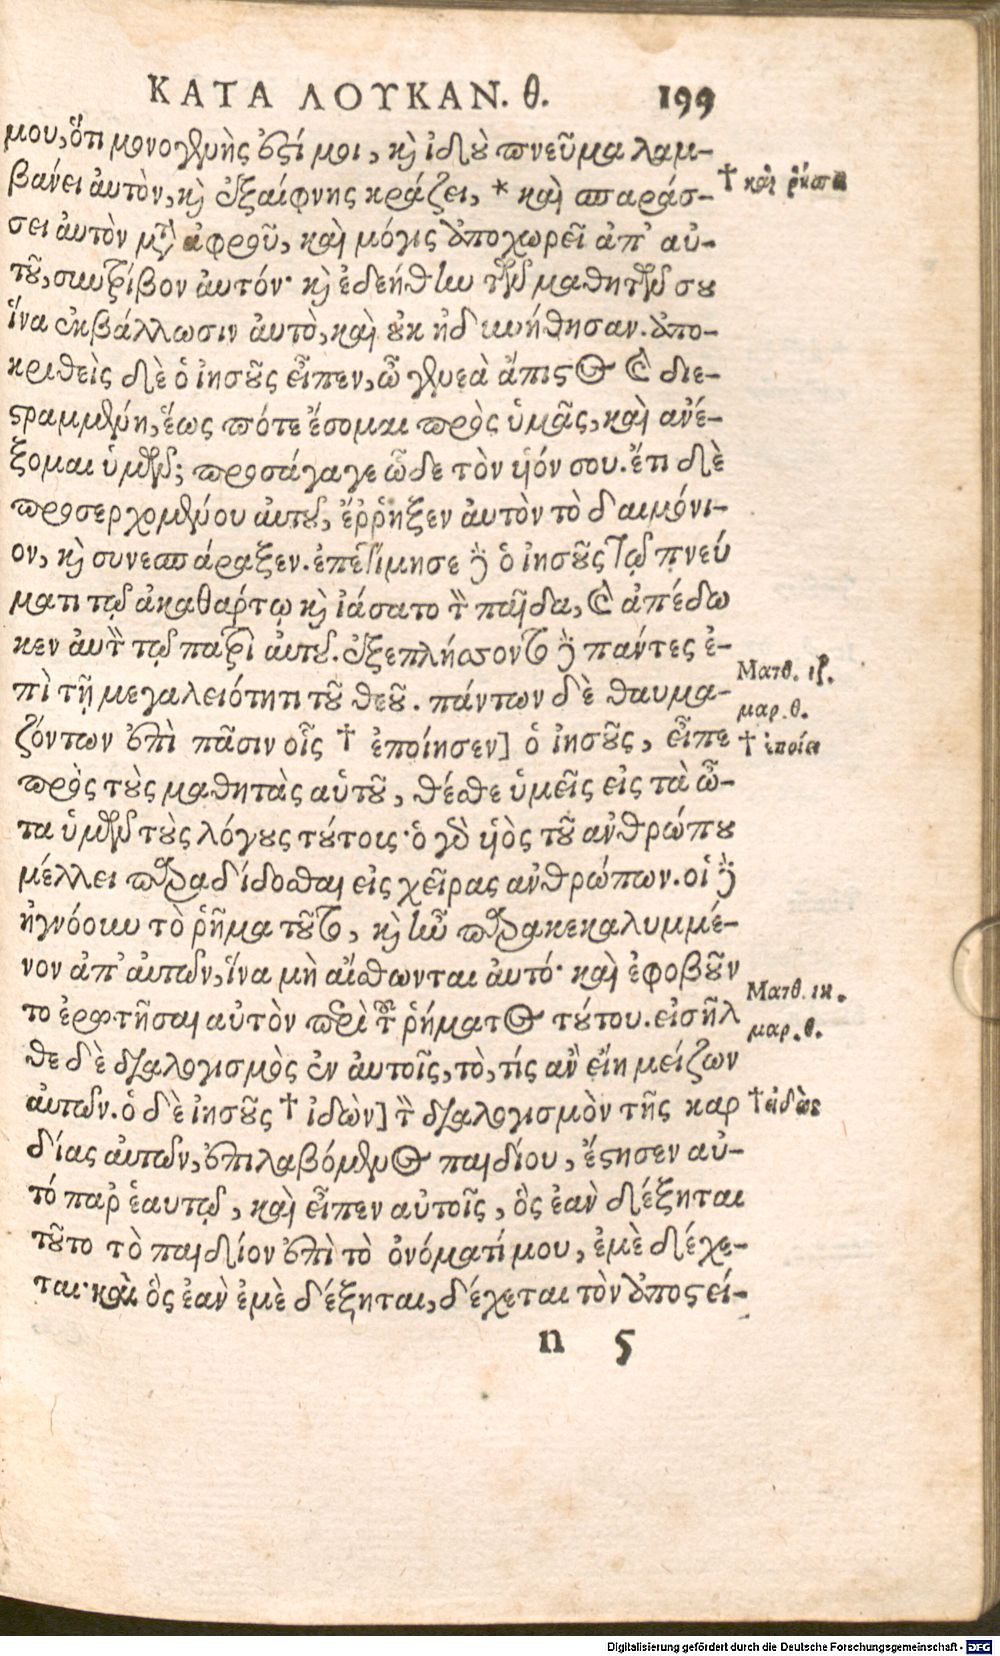 ΚΑΤΑ ΛΟΥΚΑΝ. θ. 199
μου, ὅτι μονογενὴς ἐστί μοι, καὶ ἰδοὺ πνεῦμα λαμ-
βάνει ἀυτὸν, καὶ ἐξαίφνης κράζει, * καὶ σπαράσ-
† καὶ ῥήσσει
σει ἀυτὸν μετὰ ἀφροῦ, καὶ μόγις ἀποχωρεῖ ἀπ' αὐ-
τοῦ, συντρίβον ἀυτόν· καὶ ἐδεήθην τῶν μαθητῶν σου
ἵνα ἐκβάλλωσιν ἀυτὸ, καὶ οὐκ ἠδυνήθησαν. ἀπο-
κριθεὶς δὲ ὁ ἰησοῦς εἶπεν, ὦ γενεὰ ἄπιστος καὶ διε-
στραμμένη, ἕως πότε ἔσομαι πρὸς ὑμᾶς, καὶ ανέ-
ξομαι ὑμῶν; προσάγαγε ὧδε τὸν υἱόν σου. ἔτι δὲ
προσερχομένου ἀυτοῦ, ἔῤῥηξεν ἀυτὸν τὸ δαιμόνι-
ον, καὶ συνεσπάραξεν. ἐπετίμησε δὲ ὁ ἰησοῦς τῷ πνεύ
ματι τῷ ἀκαθάρτῳ καὶ ἰάσατο τὸν παῖδα, καὶ ἀπέδω
κεν ἀυτὸν τῷ πατρὶ ἀυτοῦ. ἐξεπλήσσοντο δὲ πάντες ἐ-
πὶ τῇ μεγαλειότητι τοῦ θεοῦ. πάντων δὲ θαυμα-
Ματθ. ιζ.
μαρ. θ.
ζόντων ἐπὶ πᾶσιν οἷς † ἐποίησεν] ὁ ἰησοῦς, εἶπε
† ἐποίει
πρὸς τοὺς μαθητὰς αὑτοῦ, θέσθε ὑμεῖς εἰς τὰ ὦ-
τα ὑμῶν τοὺς λόγους τούτοις· ὁ γὰρ υἱὸς τοῦ ανθρώπου
μέλλει παραδίδοσθαι εἰς χεῖρας ανθρώπων. οἱ δὲ
ἠγνόουν τὸ ῥῆμα τοῦτο, καὶ ἦν παρακεκαλυμμέ-
νον ἀπ' ἀυτῶν, ἵνα μὴ αἴσθωνται ἀυτό· καὶ ἐφοβοῦν
Ματθ. ιη.
το ἐρωτῆσαι αὐτὸν περὶ τοῦ ῥήματος τούτου. εἰσῆλ
μαρ. θ.
θε δὲ διαλογισμὸς ἐν ἀυτοῖς, τὸ, τίς ἂν εἴη μείζων
ἀυτῶν. ὁ δὲ ἰησοῦς † ἰδὼν] τὸν διαλογισμὸν τῆς καρ
† εἰδὼς
δίας ἀυτῶν, ἐπιλαβόμενος παιδίου, ἔστησεν αὐ-
τό παρ ἑαυτῷ, καὶ εἶπεν αὐτοῖς, ὃς ἐὰν δέξηται
τοῦτο τὸ παιδίον ἐπὶ τὸ ὀνόματί μου, ἐμὲ δέχε-
ται· καὶ ὃς ἐὰν ἐμὲ δέξηται, δέχεται τὸν ἀποστεί-
n 5
Digitalisierung gefördert durch die Deutsche Forschungsgemeinschaft - DFG